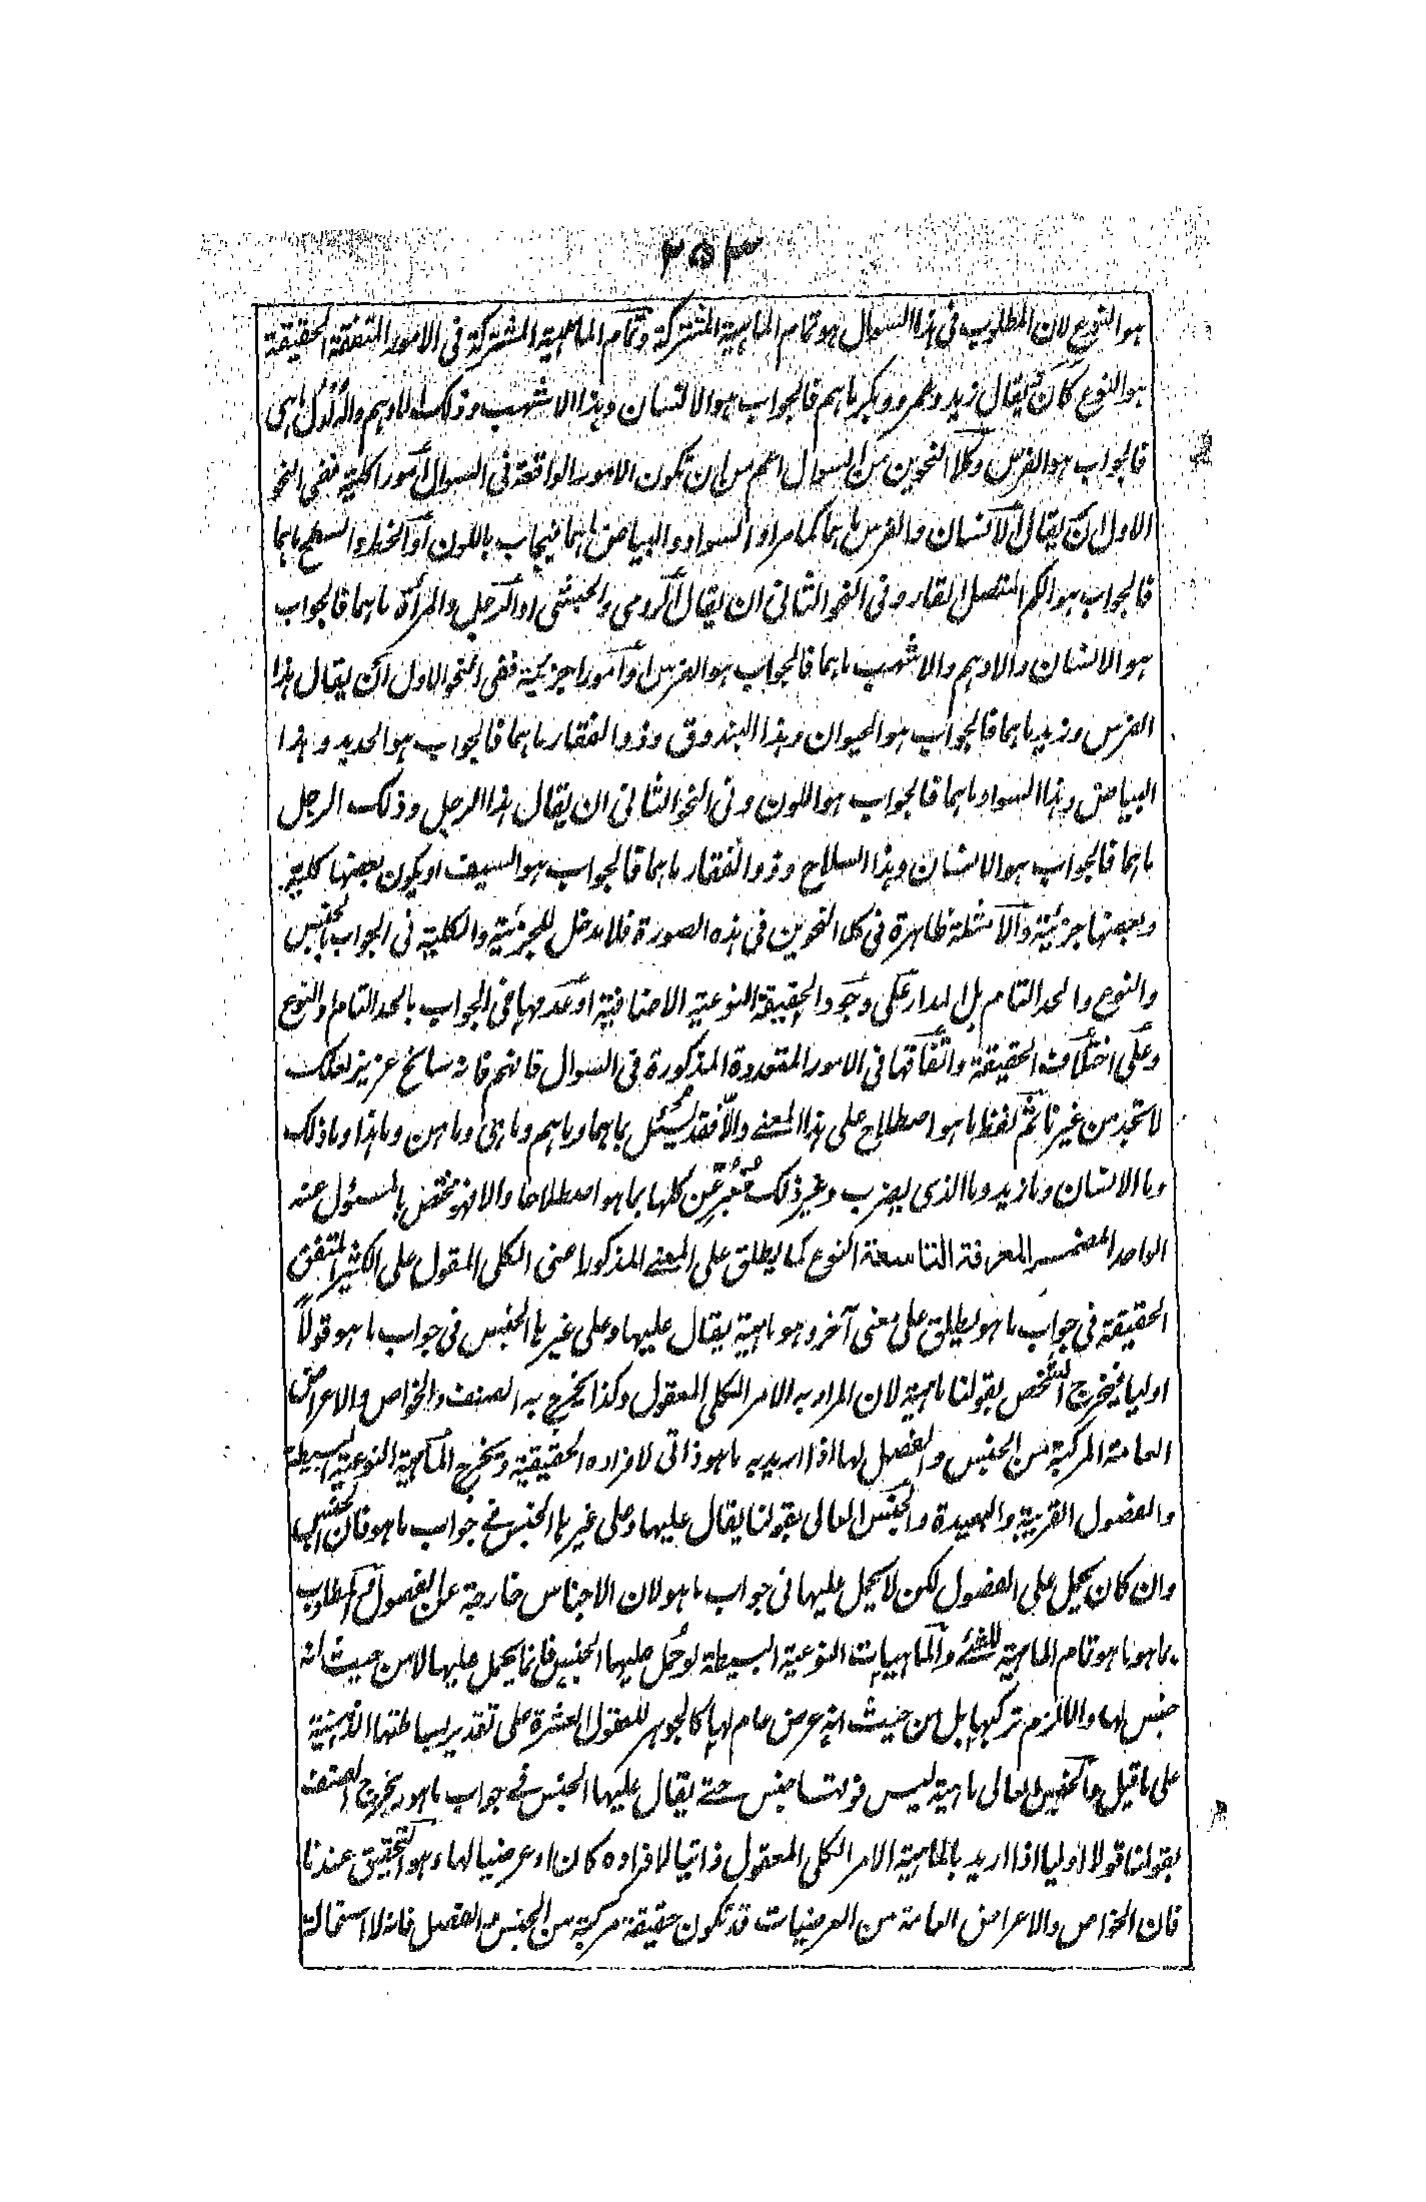 ٢٥٣
هو النوع لان المطلوب فى هذا السوال هو تمام الماهية المشتركة وتمام الماهية المشتركة فى الامور المتفقة الحقيقة
هو النوع كان يقال زيد وعمرو وبكر ما هم فالجواب هو الانسان وهذا الاشهب وذلك الادهم والدلدل ما هى
فالجواب هو الفرس وكلا النحوين من السوال اعم من ان تكون الامور الواقعة فى السوال امورا كلية ففى النحو
الاول ان يقال الانسان والفرس ما هما كما مر او السواد والبياض ما هما فيجاب باللون او الخط والسطح ما هما
فالجواب هو الكم المتصل القار وفى النحو الثانى ان يقال الرومى والحبشى او الرجل والمرأة ما هما فالجواب
هو الانسان والادهم والاشهب ما هما فالجواب هو الفرس او امورا جزئية ففى النحو الاول ان يقال هذا
الفرس وزيد ما هما فالجواب هو الحيوان وهذا البندوق وذو الفقار ما هما فالجواب هو الحديد وهذا
البياض وهذا السواد ما هما فالجواب هو اللون وفى النحو الثانى ان يقال هذا الرجل وذلك الرجل
ما هما فالجواب هو الانسان وهذا السلاح وذو الفقار ما هما فالجواب هو السيف او يكون بعضها كلية
وبعضها جزئية والامثلة ظاهرة فى كلا النحوين فى هذه الصورة فلا مدخل للجزئية والكلية فى الجواب بالجنس
والنوع والحد التام بل المدار على وجود الحقيقة النوعية الاضافية او عدمها فى الجواب بالحد التام والنوع
وعلى اختلاف الحقيقة واتفاقها فى الامور المتعددة المذكورة فى السوال فافهم فانه سانح عزيز لعلك
لا تجد من غيرنا ثم لفظ ما هو اصطلاح على هذا المعنے والا فقد يسئل بما هما وما هم وما هى وما هن وما هذا وما ذلك
وما الانسان وما زيد وما الذى يضرب وغير ذلك فعبر عن كلها بما هو اصطلاحا والا فهو مختص بالمسئول عنه
الواحد المضمر المعرفة التاسعة النوع كما يطلق على المعنے المذكور اعنى الكلى المقول على الكثير المتفق
الحقيقة فى جواب ما هو يطلق على معنى آخر وهو ماهية يقال عليها وعلى غيرها الجنس فى جواب ما هو قولًا
اوليا فيخرج الشخص بقولنا ماهية لان المراد به الامر الكلى المعقول وكذا يخرج به الصنف والخواص والاعراض
العامة المركبة من الجنس والفصل لها اذا اريد به ما هو ذاتى لافراده الحقيقية ويخرج الماهية النوعية البسيطة
والفصول القريبة والبعيدة والجنس العالى بقولنا يقال عليها وعلى غيرها الجنس فے جواب ما هو فان الجنس
وان كان يحمل على الفصول لكن لا يحمل عليها فى جواب ما هو لان الاجناس خارجة عن الفصول والمطلوب
بما هو ما هو تمام الماهية للشئ والماهيات النوعية البسيطة لو حُمل عليها الجنس فانما يحمل عليها لا من حيث انه
جنس لها والا لزم تركبها بل من حيث انه عرض عام لها كالجوهر للعقول العشرة على تقدير بساطتها الذهنية
على ما قيل والجنس العالى ماهية ليس فوقها جنس حتے يقال عليها الجنس فے جواب ما هو ويخرج الصنف
بقولنا قولا اوليا اذا اريد بالماهية الامر الكلى المعقول ذاتيا لافراده كان او عرضيا لها وهو التحقيق عندنا
فان الخواص والاعراض العامة من العرضيات قد تكون حقيقة مركبة من الجنس والفصل فانه لا استحالة